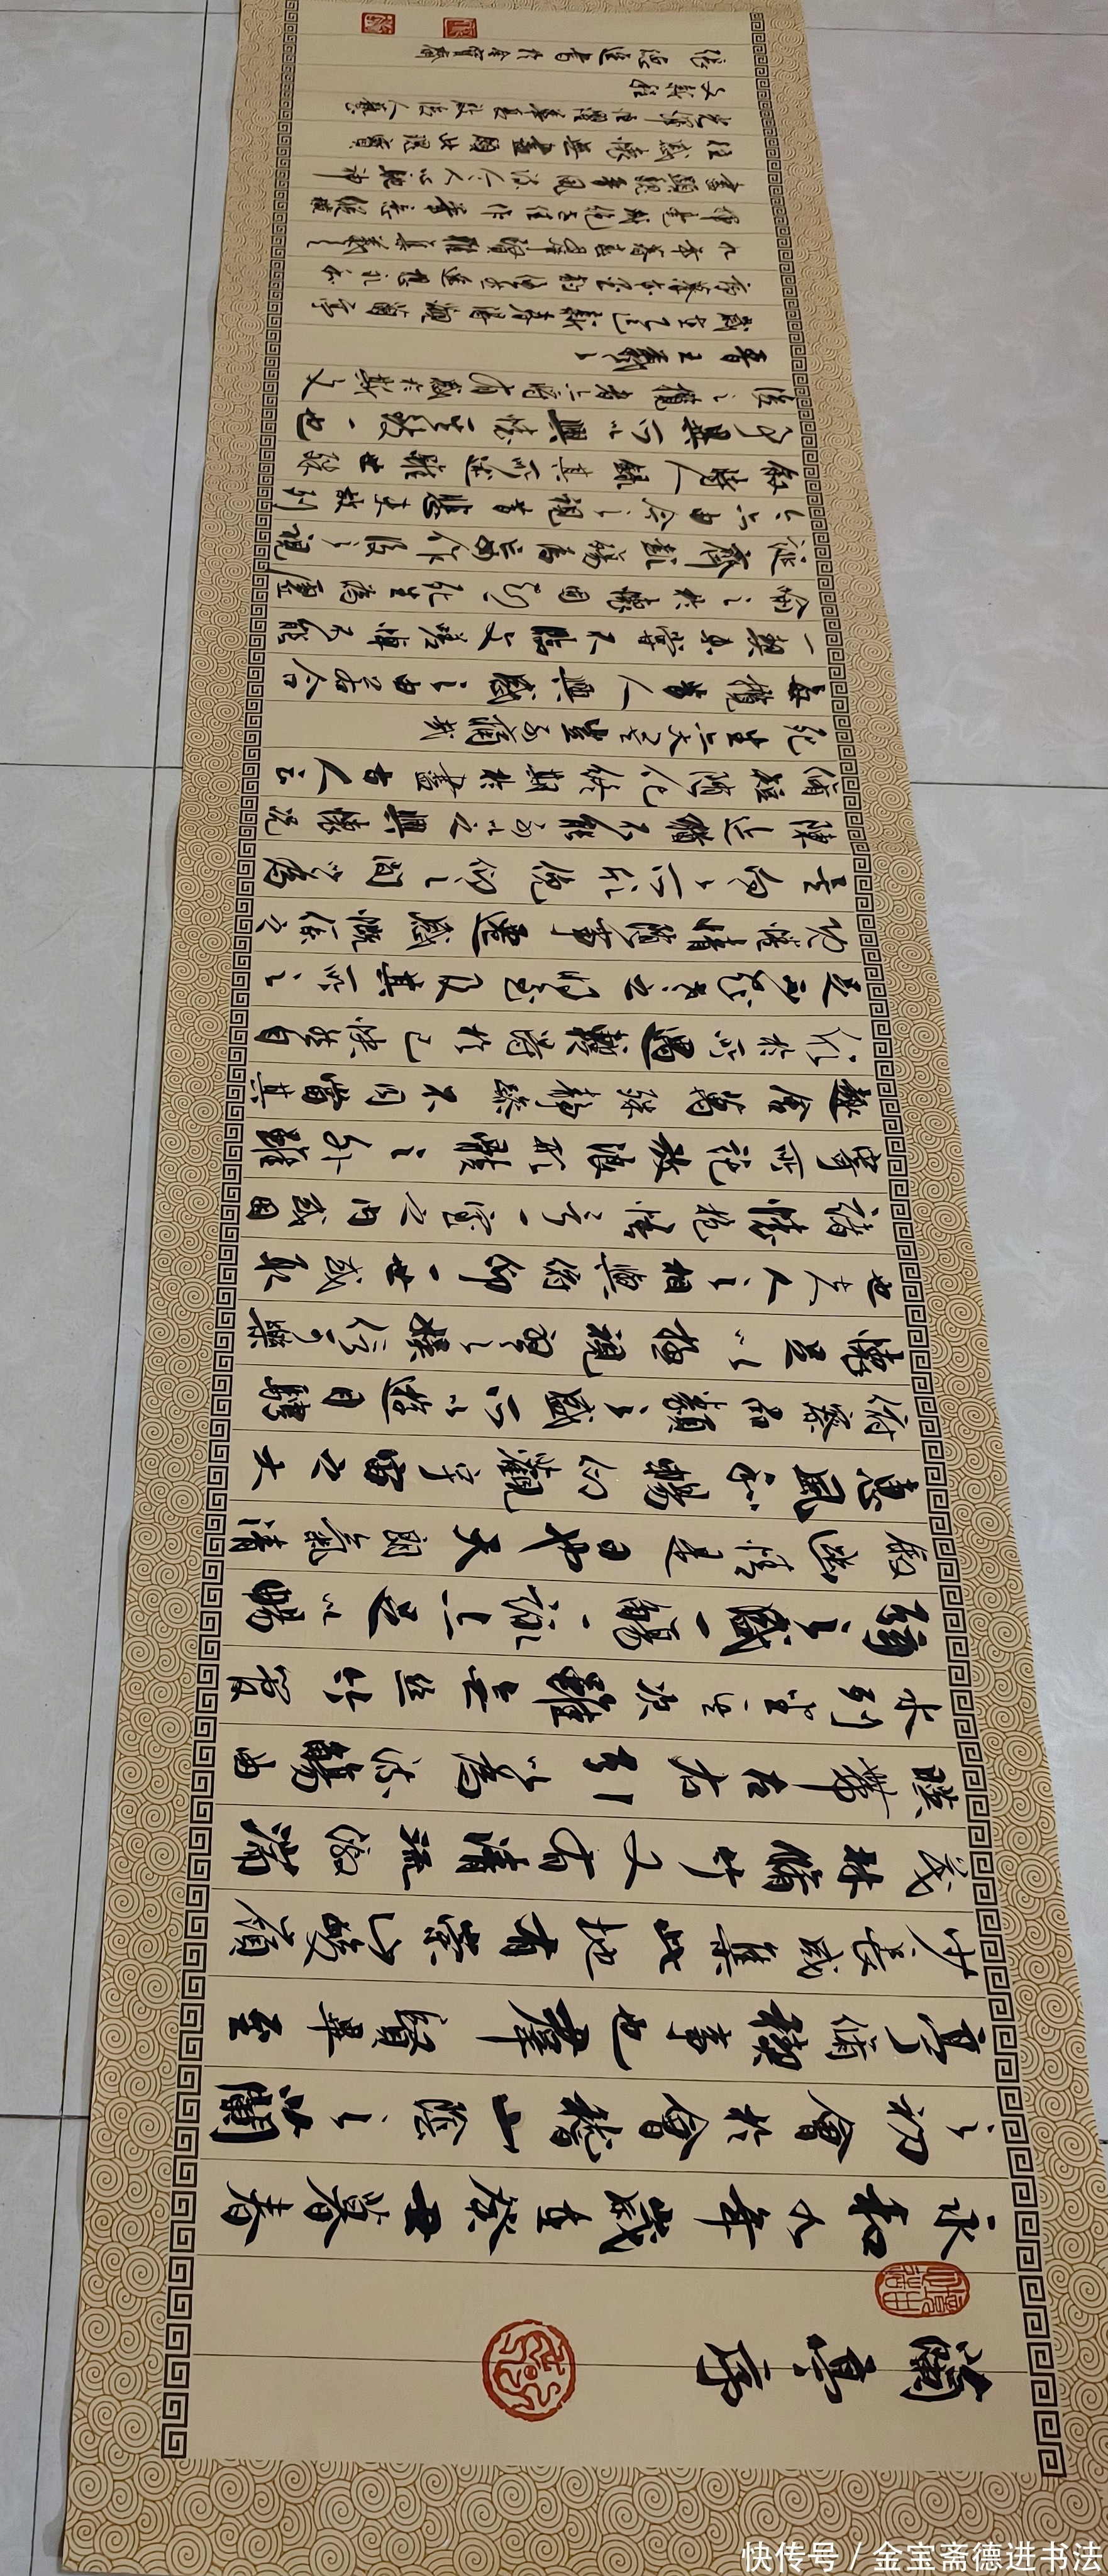 蘭亭序
永和九年歲在癸丑暮春
之初會於會稽山陰之蘭
亭脩禊事也群賢畢至
少長咸集此地有崇山峻嶺
茂林脩竹又有清流激湍
暎帶左右引以為流觴曲
水列坐其次雖無絲竹管
弦之盛一觴一詠亦足以暢
敘幽情是日也天朗氣清
惠風和暢仰觀宇宙之大
俯察品類之盛所以遊目騁
懷足以極視聽之娛信可樂
也夫人之相與俯仰一世或取
諸懷抱悟言一室之內或因
寄所託放浪形骸之外雖
趣舍萬殊靜躁不同當其
欣於所遇暫得於己快然自
足不知老之將至及其所之
既惓情隨事遷感慨係之
矣向之所欣俛仰之間以為
陳迹猶不能不以之興懷況
脩短隨化終期於盡古人云
死生亦大矣豈不痛哉
每攬昔人興感之由若合
一契未嘗不臨文嗟悼不能
喻之於懷固知一死生為虛
誕齊彭殤為妄作後之視
今亦由今之視昔悲夫故列
敘時人錄其所述雖世殊
事異所以興懷其致一也
後之攬者亦將有感於斯文
晉王羲之
歲在乙巳新春得觀蘭亭
德進書於金寶齋
快传号/金宝斋德进书法